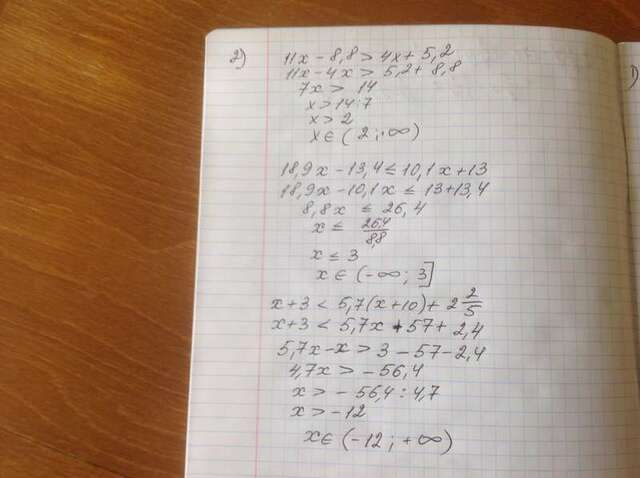 2) 11x - 8,8 > 4x + 5,2
11x - 4x > 5,2 + 8,8
7x > 14
x > 14:7
x > 2
x ∈ (2; +∞)
18,9x - 13,4 ≤ 10,1x + 13
18,9x - 10,1x ≤ 13 + 13,4
8,8x ≤ 26,4
x ≤ 26,4/8,8
x ≤ 3
x ∈ (-∞; 3]
x + 3 < 5,7(x + 10) + 2 2/5
x + 3 < 5,7x + 57 + 2,4
5,7x - x > 3 - 57 - 2,4
4,7x > - 56,4
x > - 56,4 : 4,7
x > - 12
x ∈ (-12; +∞)
1)